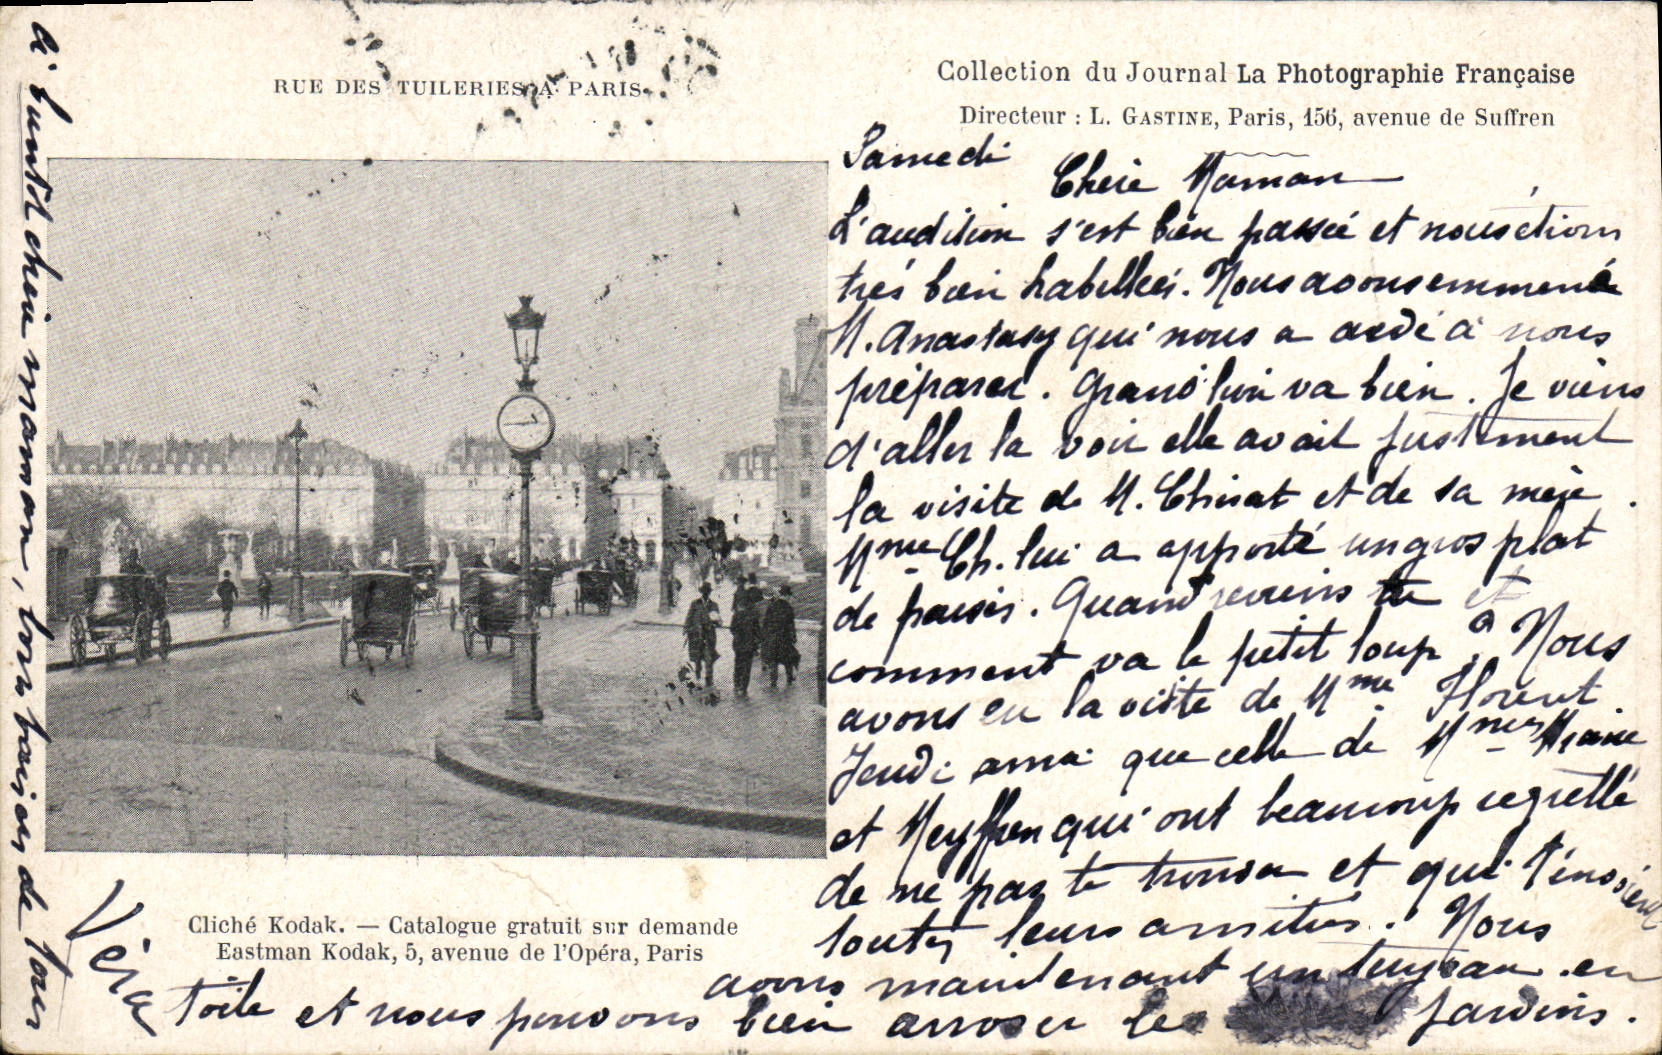 RUE DES TUILERIES A PARIS
Collection du Journal La Photographie Française
Directeur : L. GASTINE, Paris, 156, avenue de Suffren
Samedi
Chère Maman
L'audition s'est bien passée et nous étions
très bien habillées. Nous avons emmené
M. Anastasy qui nous a aidé à nous
préparer. Grand'mère va bien. Je viens
d'aller la voir elle avait justement
la visite de M. Chirat et de sa mère.
Mme Ch. lui a apporté un gros plat
de fraises. Quand reviens tu et
comment va le petit loup ? Nous
avons eu la visite de Mme Florent
Jeudi ainsi que celle de Mmes
et Meyffren qui ont beaucoup regretté
de ne pas te trouver et qui t'envoient
toutes leurs amitiés. Nous
avons maintenant un tuyau en
toile et nous pouvons bien arroser les jardins.
à bientôt chère maman, bons baisers de ton
Véra
Cliché Kodak. — Catalogue gratuit sur demande
Eastman Kodak, 5, avenue de l'Opéra, Paris